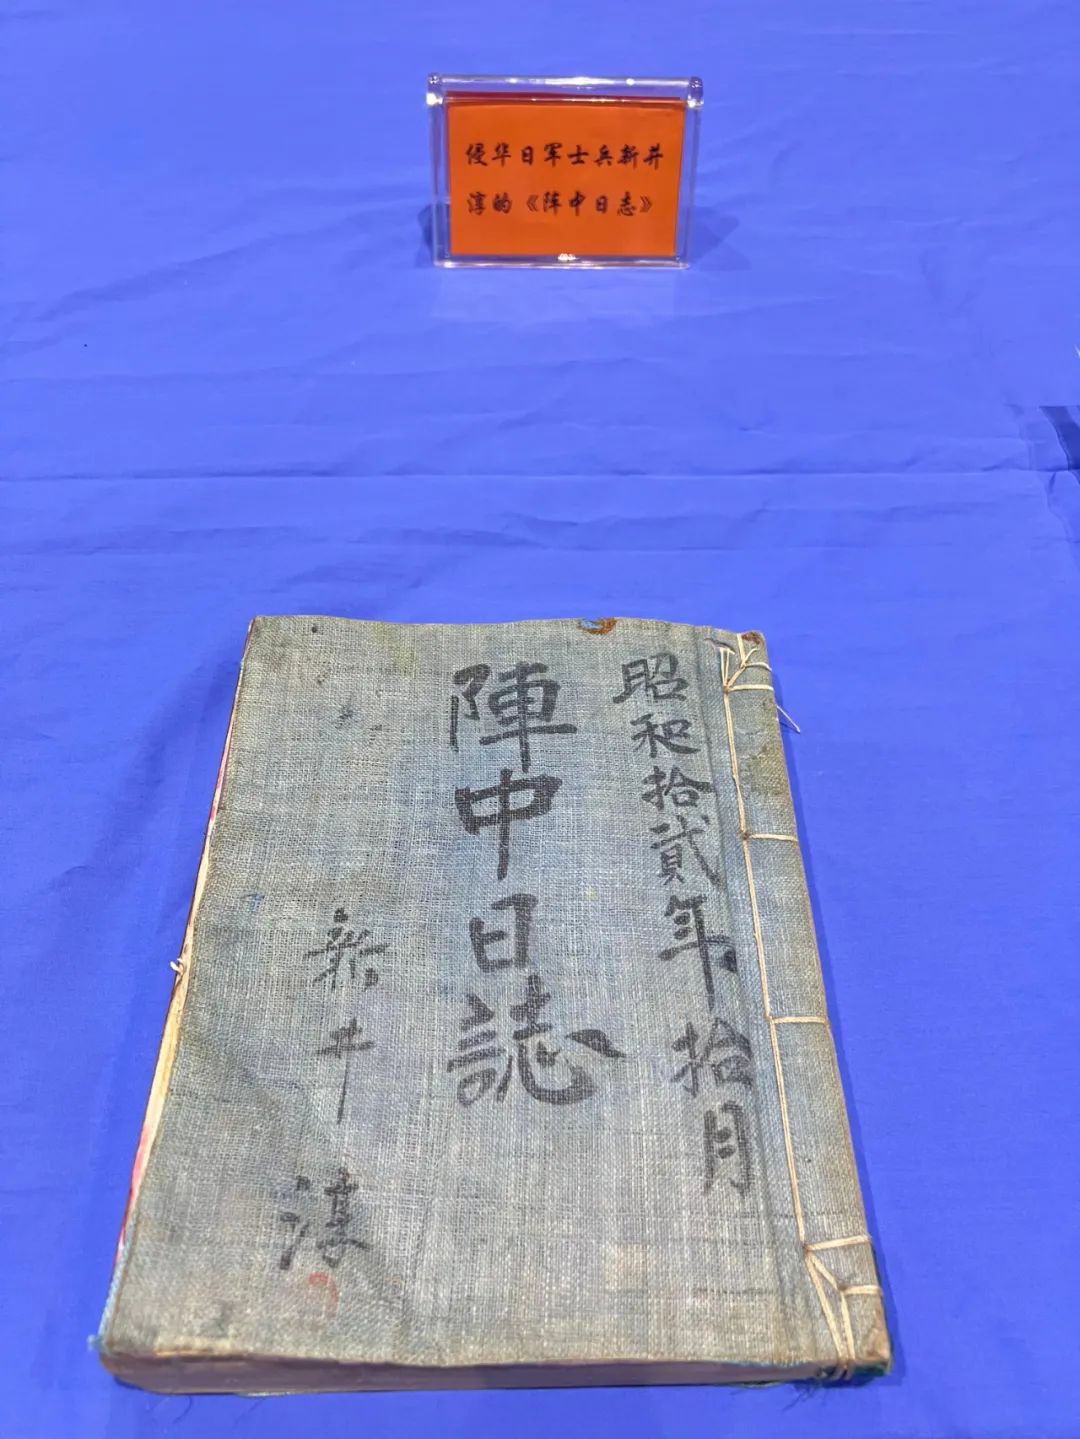 侵华日军士兵新井
淳的《阵中日志》
昭和拾貳年拾月
陣中日誌
新井淳